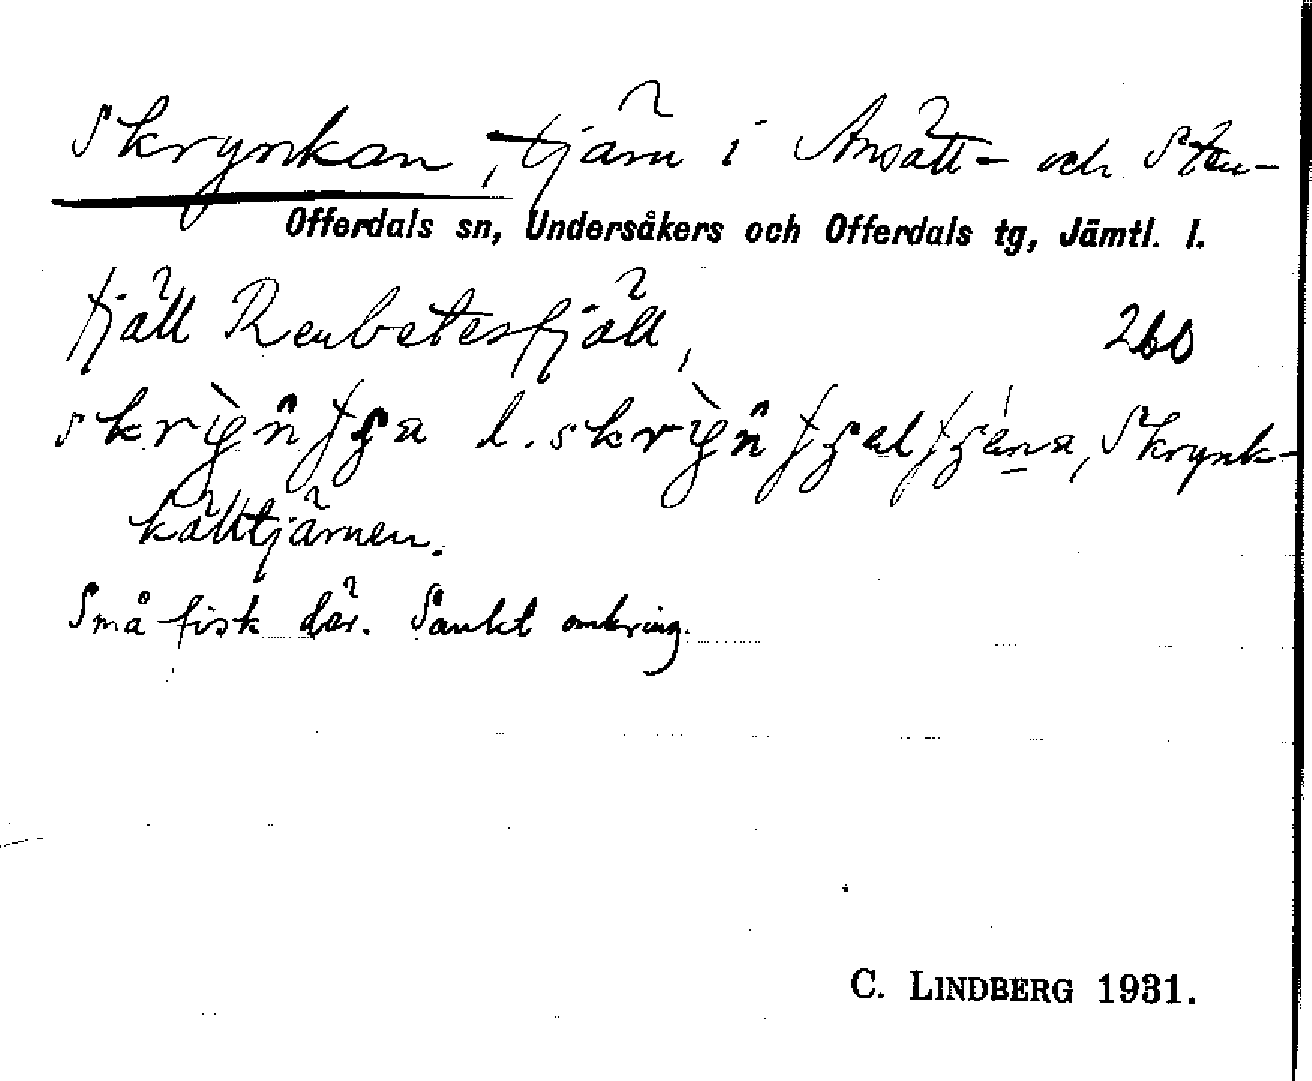 Skrynkan, tjärn i Ansätt- och Sten-
Offerdals sn, Undersåkers och Offerdals tg, Jämtl. l.
fjäll Renbetesfjäll, 260
l. Skrynk-
källtjärnen.
Små fisk där. Sankt omkring.
C. LINDBERG 1931.